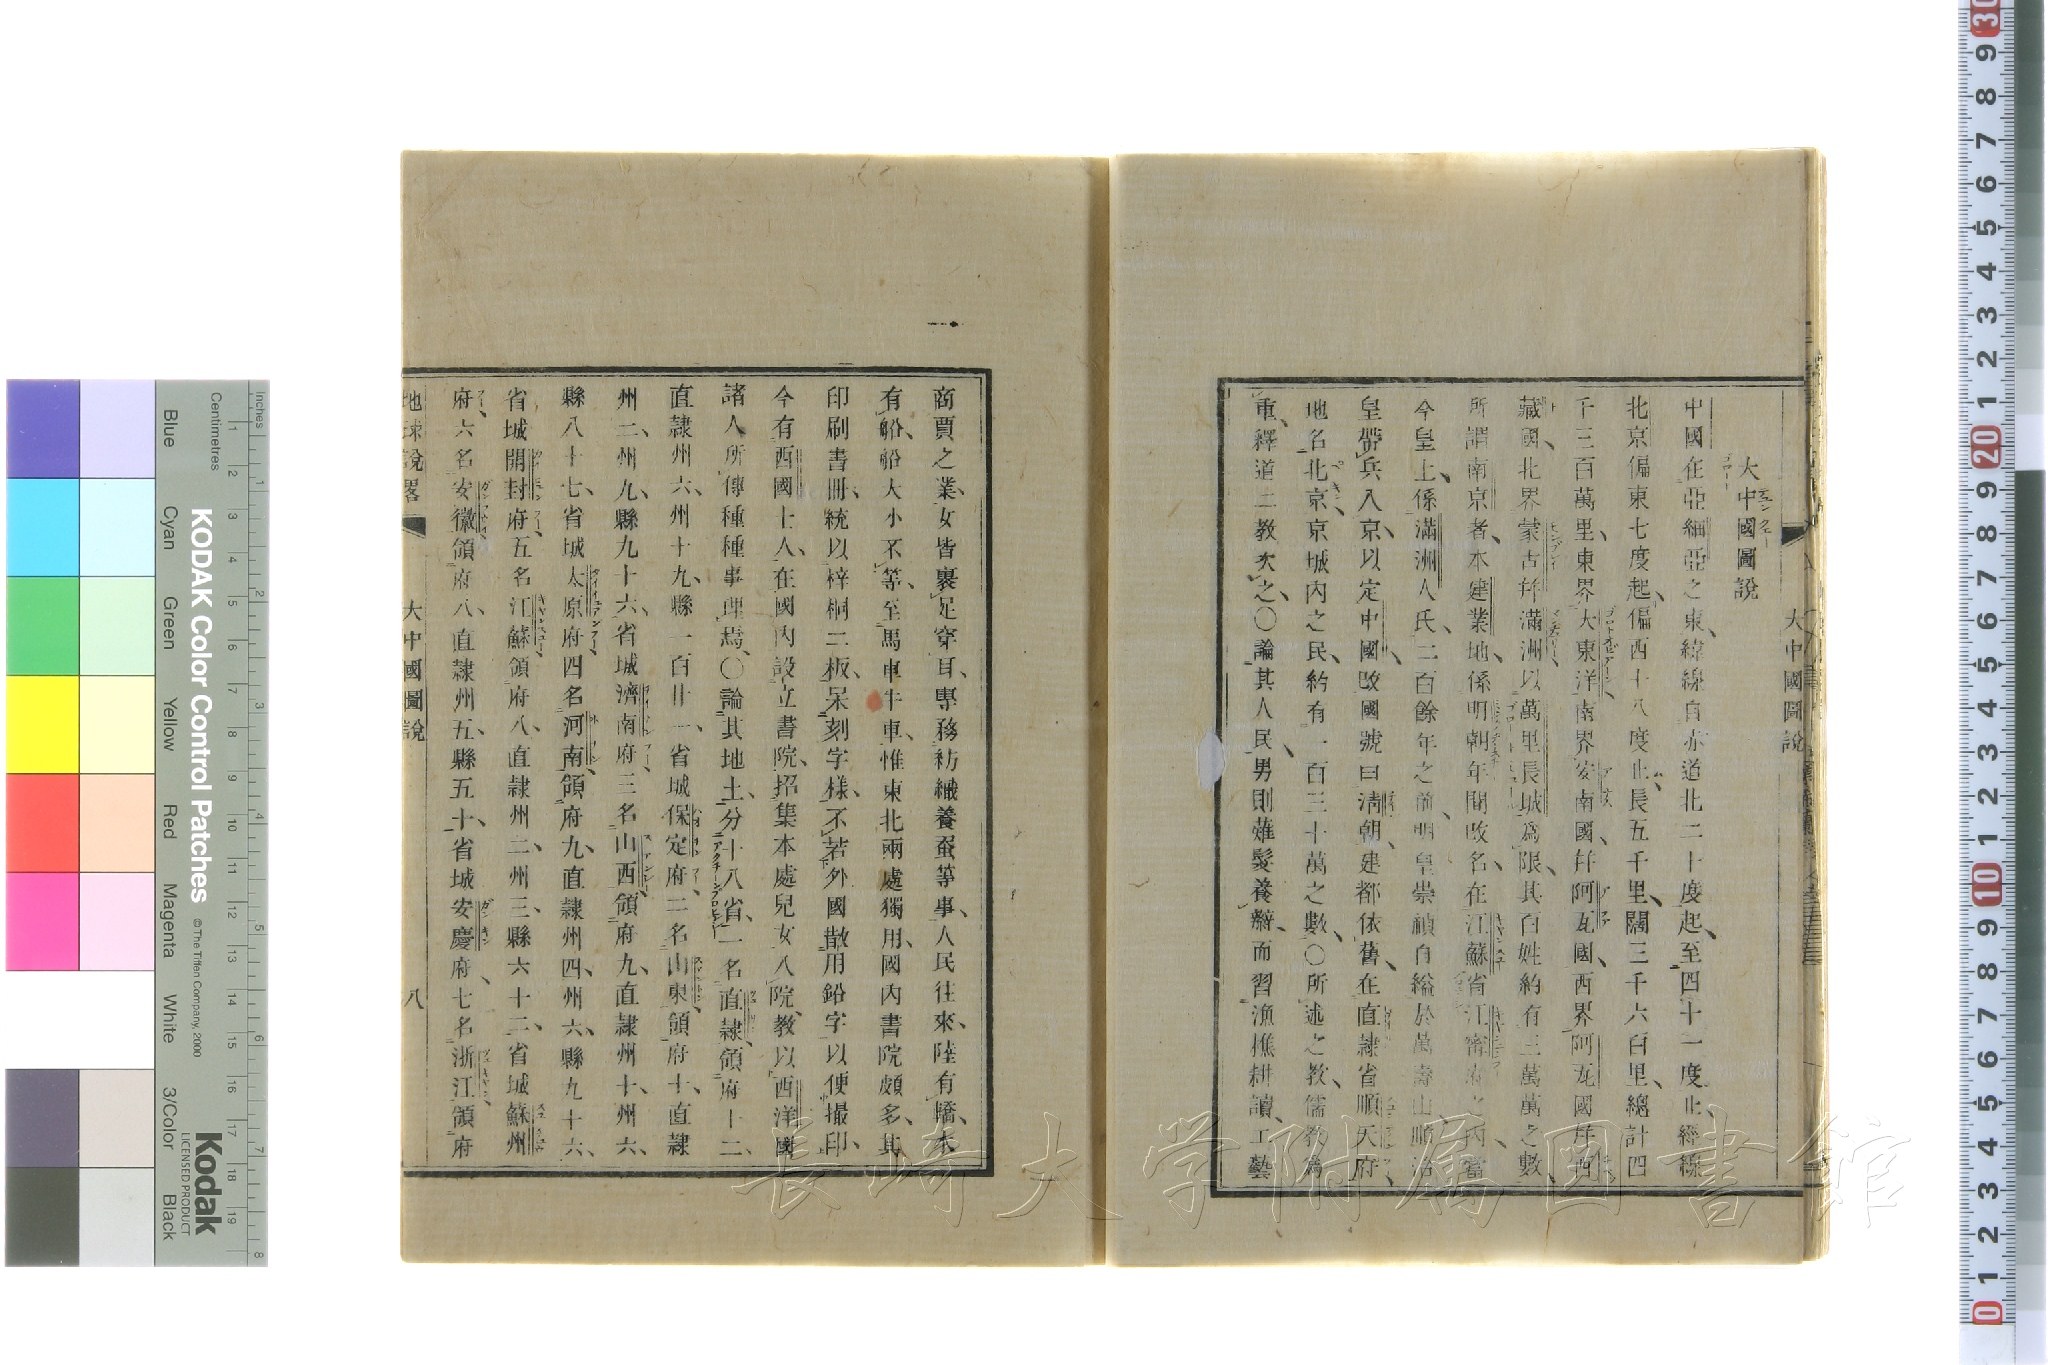 大中國圖說
大中國圖說
中國在亞細亞之東、緯線自赤道北二十度起、至四十一度止、經線
北京偏東七度起、偏西十八度止、長五千里、闊三千六百里、總計四
千三百萬里、東界大東洋、南界安南國、幷阿瓦國、西界阿瓦國幷西
藏國、北界蒙古幷滿洲、以萬里長城爲限、其百姓約有三萬萬之數
所謂南京者、本建業地、係明朝年間改名、在江蘇省江寧府之內、當
今皇上、係滿洲人氏、二百餘年之前、明皇崇禎自縊於萬壽山、順治
皇帶兵入京、以定中國、改國號曰淸朝、建都依舊、在直隸省順天府、
地名北京、京城內之民、約有一百三十萬之數、〇所述之教、儒教爲
重、釋道二教次之、〇論其人民、男則薙髮養辮、而習漁樵耕讀工藝
商賈之業、女皆裹足穿耳、專務紡織養蚕等事、人民往來、陸有轎、水
有船、船大小不等、至馬車牛車、惟東北兩處獨用、國內書院頗多、其
印刷書冊、統以梓桐二板、呆刻字樣、不若外國散用鉛字以便撮印、
今有西國士人、在國內設立書院、招集本處兒女入院、教以西洋國
諸人所傳種種事理焉、〇論其地土、分十八省、一名直隸、領府十二、
直隸州六、州十九、縣一百廿一、省城保定府、二名山東、領府十、直隸
州二、州九、縣九十六、省城濟南府、三名山西、領府九、直隸州十、州六、
縣八十七、省城太原府、四名河南、領府九、直隸州四、州六、縣九十六、
省城開封府、五名江蘇、領府八、直隸州二、州三、縣六十二、省城蘇州
府、六名安徽、領府八、直隸州五、縣五十、省城安慶府、七名浙江、領府
地球說畧
大中國圖說
八
Inches
Centimetres
Blue
Cyan
Green
Yellow
Red
Magenta
White
3/Color
Black
KODAK Color Control Patches
© The Tiffen Company, 2000
Kodak
LICENSED PRODUCT
長崎大学附属図書館